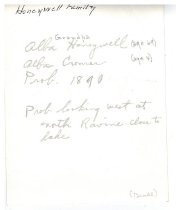 Honeywell Family
Grandpa
Alba Honeywell (age 69)
Alba Cromer (age 8)
Prob. 1890
Prob looking west at
north Ravine close to
lake